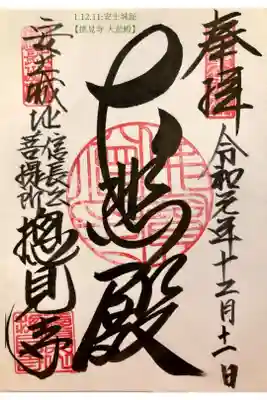 1.12.11:安土城址
【摠見寺 大悲殿】
奉拝
令和元年十二月十一日
大悲殿
安土城址
信長公
菩提所
摠見寺